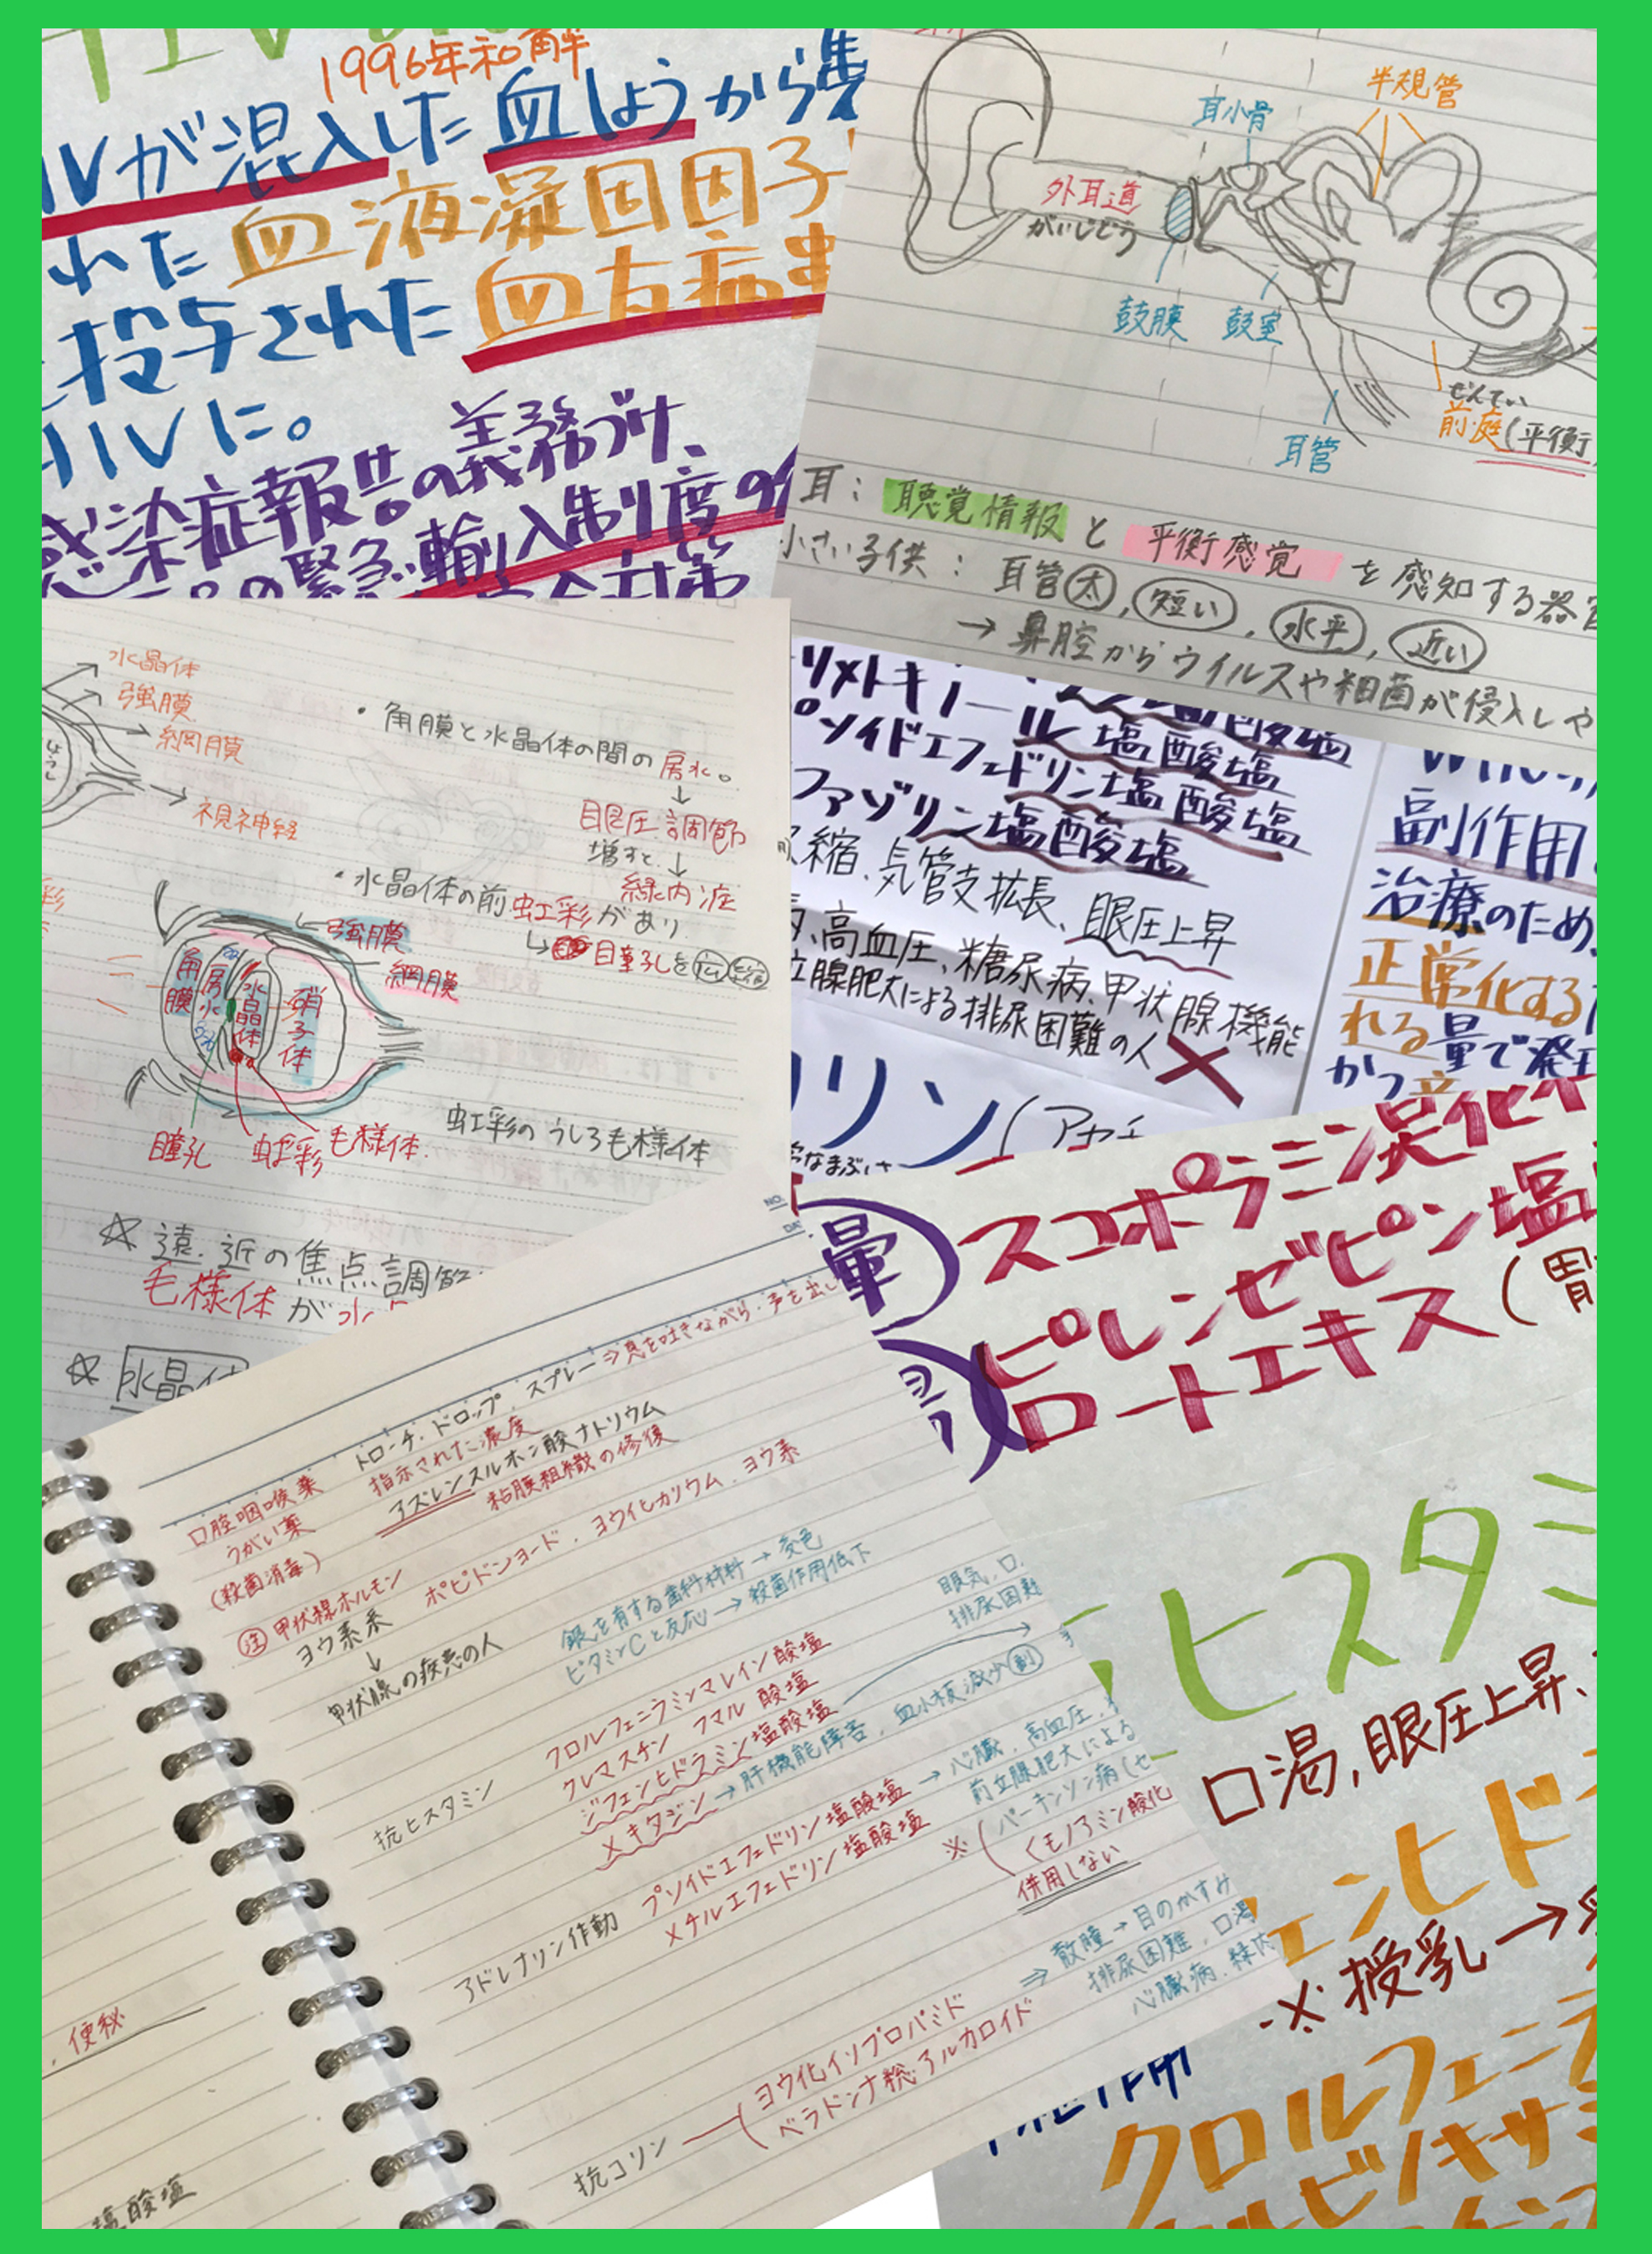 1996年和解
IVが混入した血しょうから
れた血液凝固因子
投与された血友病
HIVに。
感染症報告の義務づけ、
の緊急輸入制度の
半規管
耳小骨
外耳道
がいじどう
鼓膜 鼓室
ぜんてい
前庭(平衡
耳管
耳：聴覚情報と平衡感覚を感知する器官
小さい子供：耳管太,短い,水平,近い
→鼻腔からウイルスや細菌が侵入しや
水晶体
強膜
網膜
視神経
・角膜と水晶体の間の房水。
↓
眼圧調節
増すと↓
緑内症
・水晶体の前虹彩があり
↳瞳孔を広縮
強膜
網膜
角膜
房水
水晶体
硝子体
瞳孔 虹彩 毛様体
虹彩のうしろ毛様体
☆遠.近の焦点調節
毛様体が水
☆水晶体
リメトキノール塩酸塩
プソイドエフェドリン塩酸塩
ファゾリン塩酸塩
収縮、気管支拡長、眼圧上昇
高血圧、糖尿病、甲状腺機能
立腺肥大による排尿困難の人×
リン(アセチ
副作用
治療のため
正常化する
れる量で発
かつ
暈
スコポラミン臭化
ピレンゼピン塩
ロートエキス(胃
トローチ.ドロップ.スプレー⇒息を吐きながら.声を出し
口腔咽喉薬 指示された濃度
うがい薬 アズレンスルホン酸ナトリウム
(殺菌消毒) 粘膜組織の修復
注 甲状線ホルモン ポピドンヨード.ヨウ化カリウム.ヨウ素
ヨウ素系
↓
甲状腺の疾患の人
銀を有する歯科材料→変色
ビタミンCと反応→殺菌作用低下
眼気,口.
排尿困難
抗ヒスタミン
クロルフェニラミンマレイン酸塩
クレマスチンフマル酸塩
ジフェンヒドラミン塩酸塩
メキタジン→肝機能障害,血小板減少 副
アドレナリン作動
プソイドエフェドリン塩酸塩→心臓,高血圧,
メチルエフェドリン塩酸塩
前立腺肥大による
※(パーキンソン病(セ
くモノアミン酸化
併用しない
⇒散瞳→目のかすみ
排尿困難,口渇
心臓病.緑内
抗コリン
ヨウ化イソプロパミド
ベラドンナ総アルカロイド
便秘
塩酸塩
ヒスタミ
口渇,眼圧上昇、
ェンヒドラ
※授乳→
クロルフェニラ
ルビノキサミ